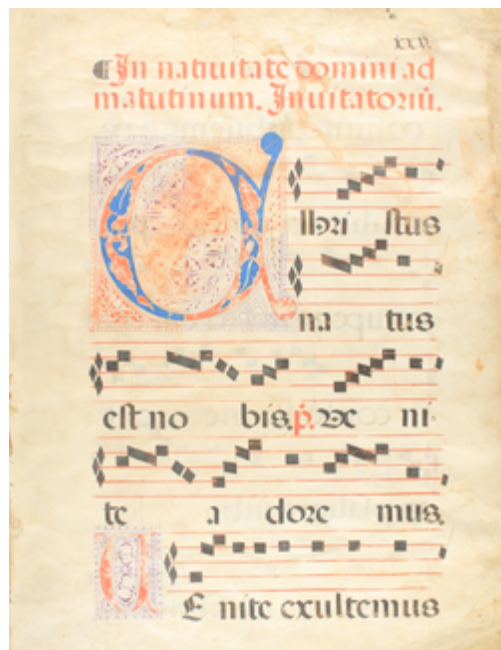 xxv.
¶In natiuitate domini ad
matutinum. Inuitatoriū.
Chri stus
na tus
est no bis. p̄. Ve ni
te a dore mus.
VE nite exultemus